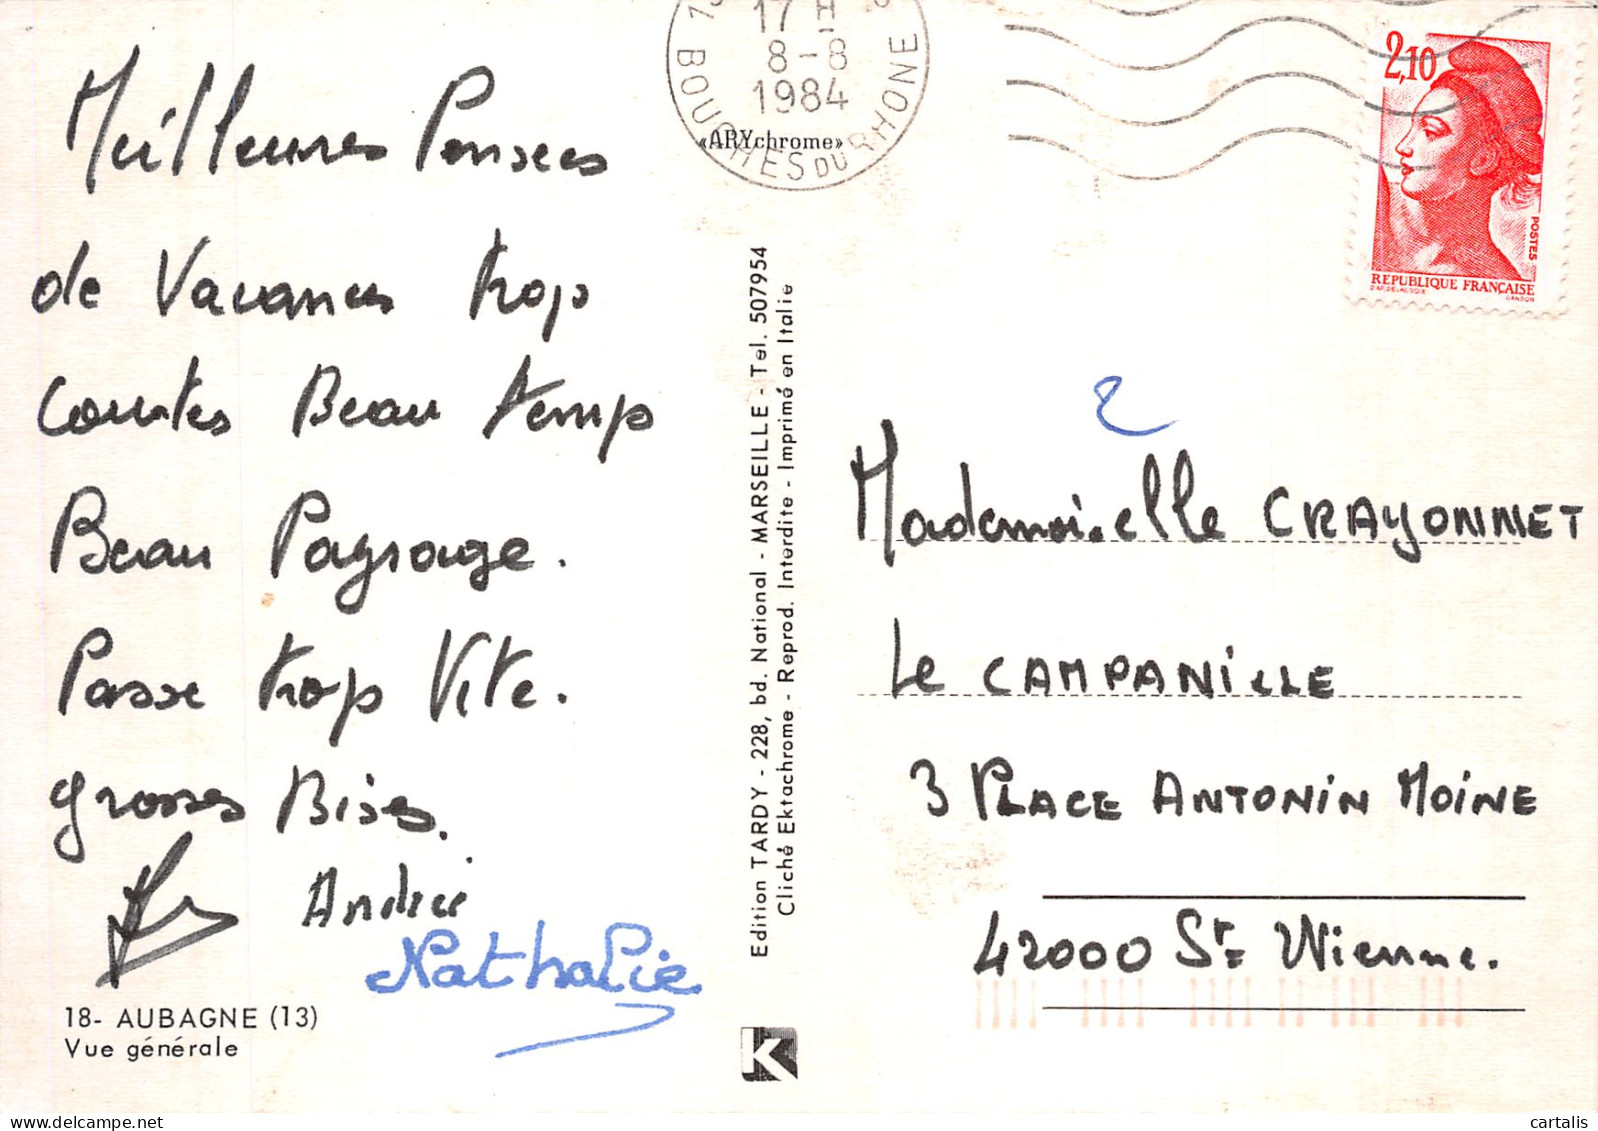 Meilleures Pensées
de Vacances trop
Courtes Beau temp
Beau Paysage.
Passe trop Vite.
grosses Bises.
André
Nathalie
18- AUBAGNE (13)
Vue générale
17 H
8-8
1984
BOUCHES DU RHONE
«ARYchrome»
Edition TARDY - 228, bd. National - MARSEILLE - Tel. 507954
Cliché Ektachrome - Reprod. Interdite - Imprimé en Italie
K
2,10
POSTES
REPUBLIQUE FRANÇAISE
D'AP. DELACROIX
GANDON
2
Mademoiselle CRAYONNET
Le CAMPANILLE
3 PLACE ANTONIN MOINE
42000 St Etienne.
cartalis